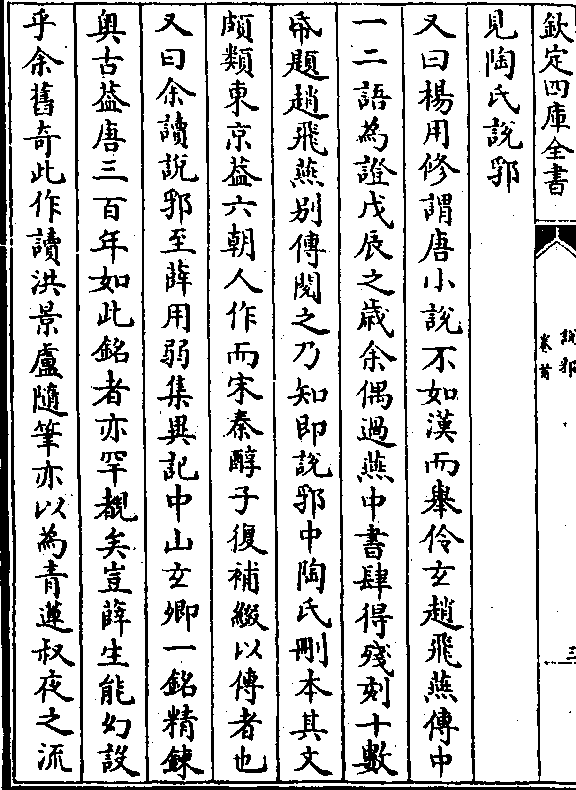 欽定四庫全書
說郛
卷首
三
見陶氏說郛
又曰楊用修謂唐小說不如漢而舉伶玄趙飛燕傳中
一二語為證戊辰之歲余偶過燕中書肆得殘刻十數
帋題趙飛燕别傳閱之乃知即說郛中陶氏刪本其文
頗類東京葢六朝人作而宋秦醇子復補綴以傳者也
又曰余讀說郛至薛用弱集異記中山玄卿一銘精錬
奥古葢唐三百年如此銘者亦罕覩矣豈薛生能幻設
乎余舊奇此作讀洪景盧隨筆亦以為青蓮叔夜之流